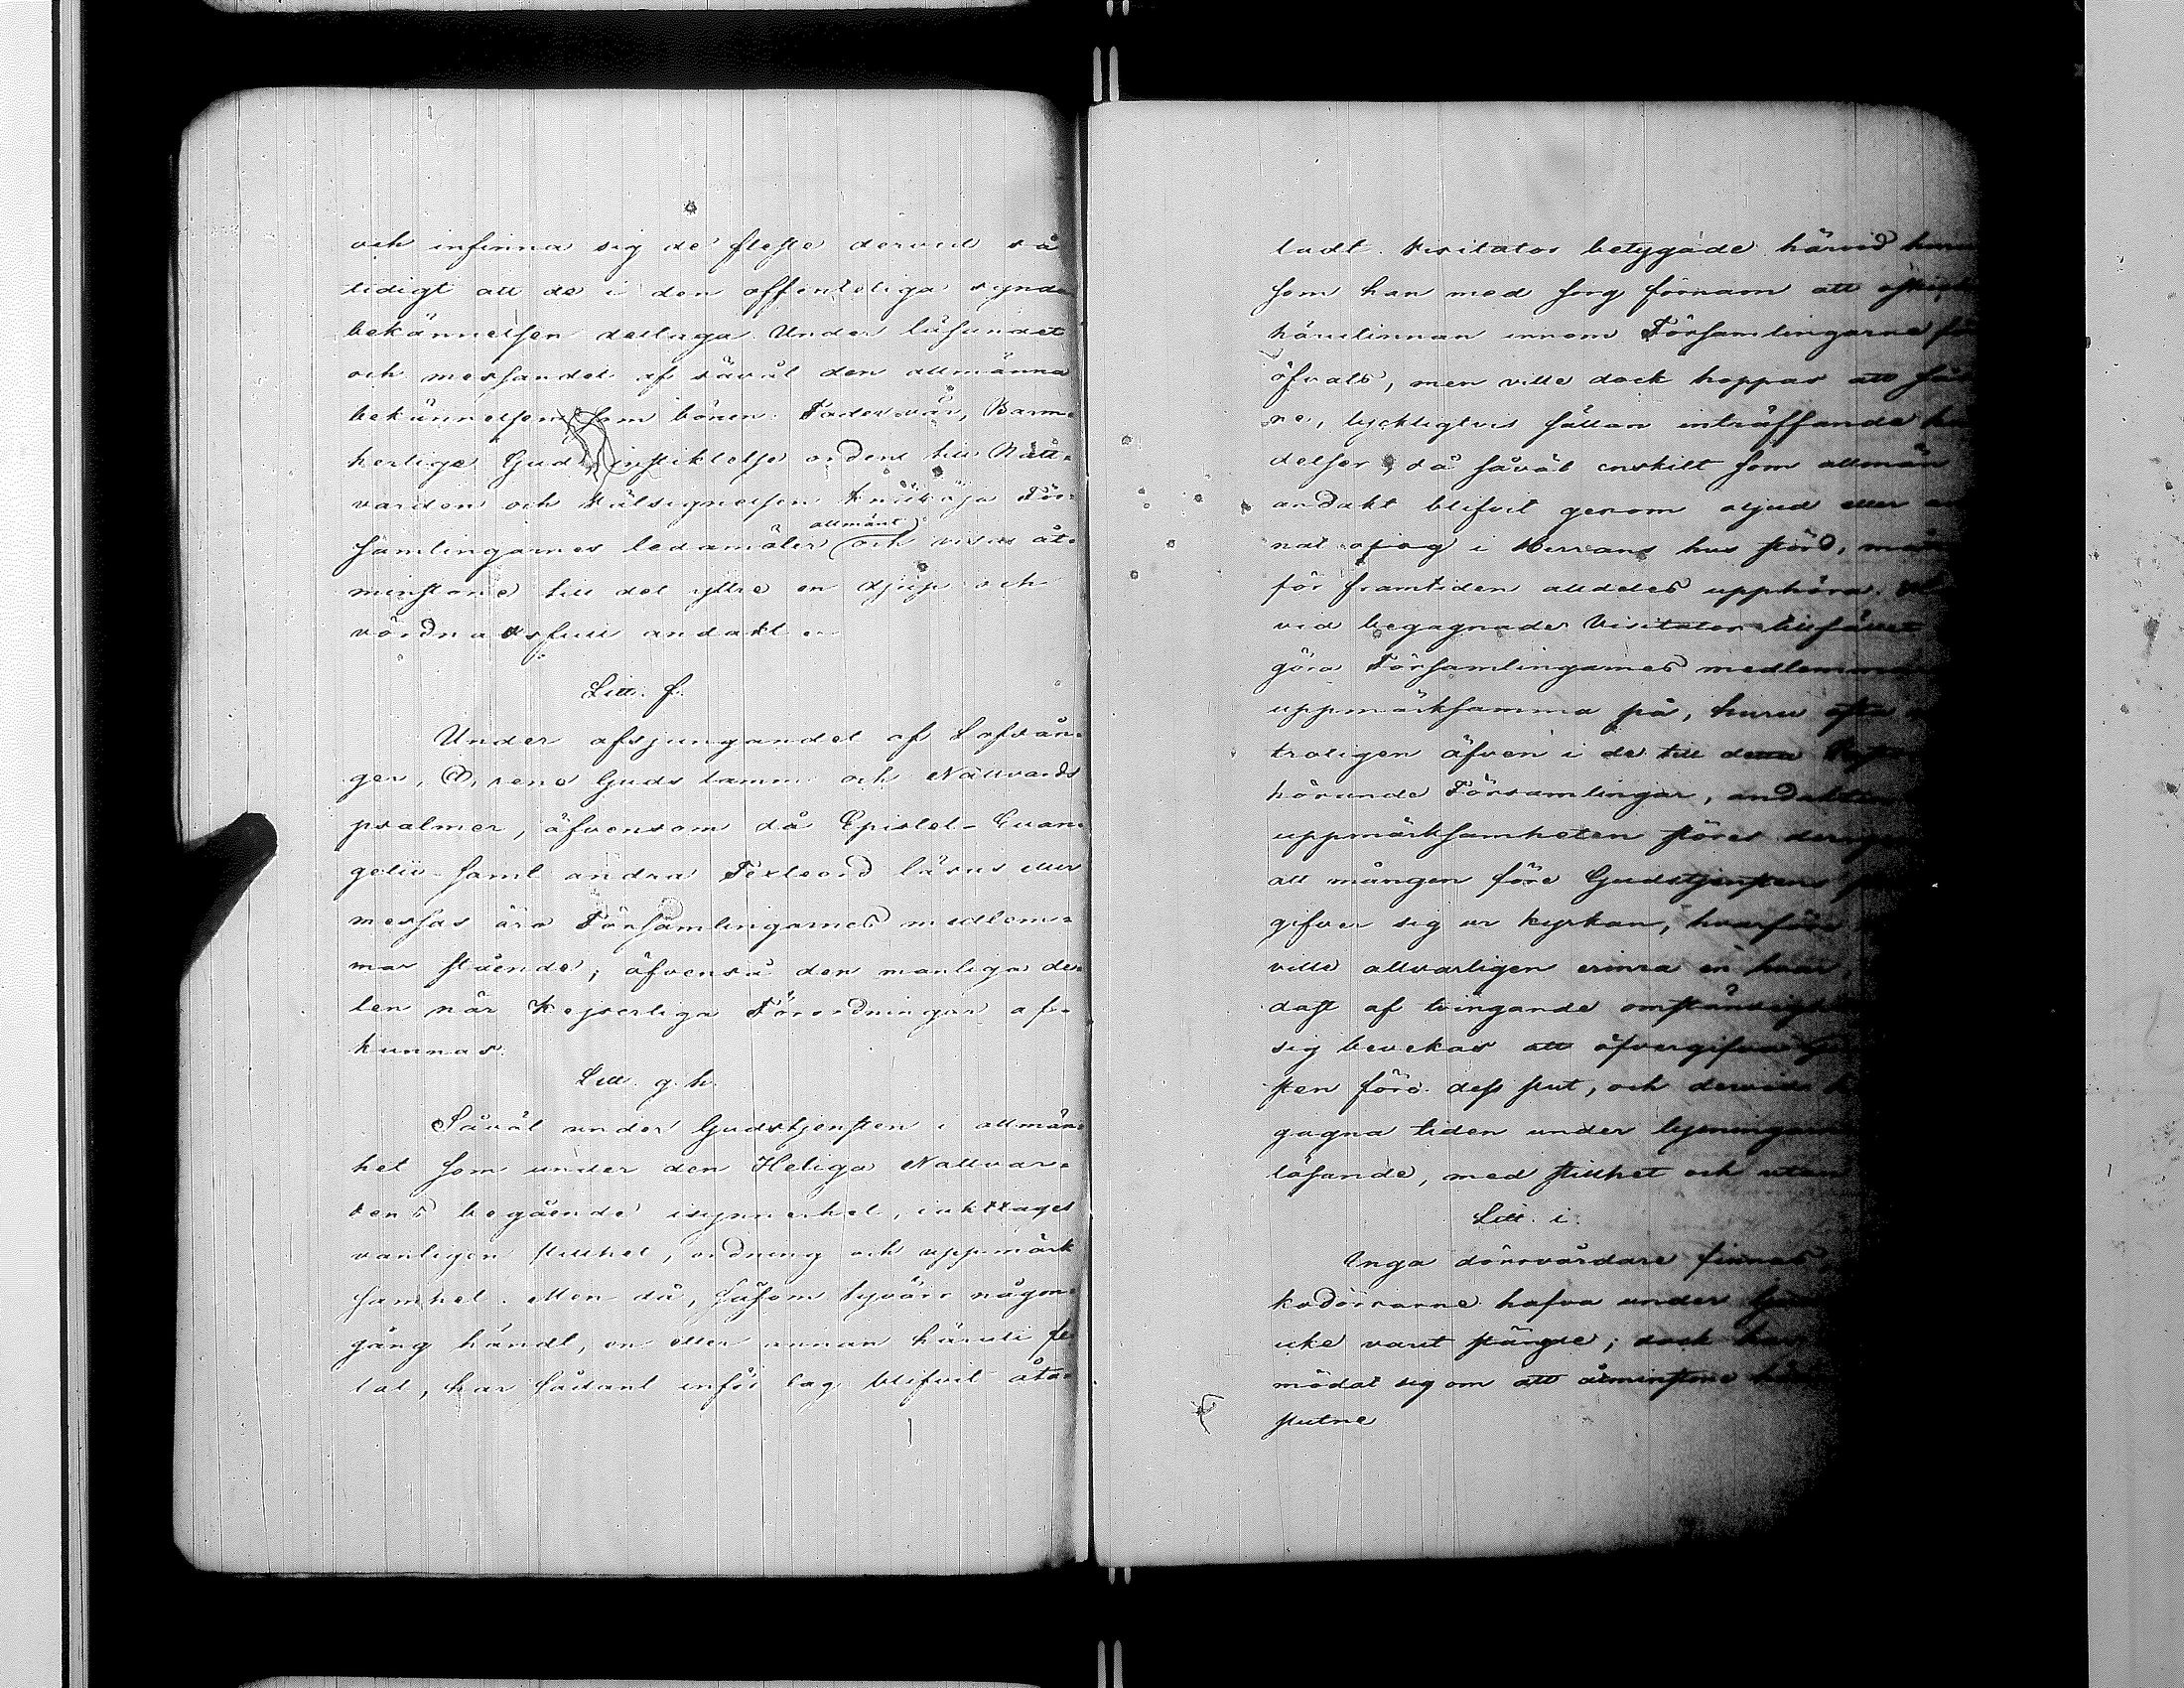 och infinna sig de fleste dervid så
tidigt att de i den offenteliga synda
bekännelsen deltaga. Under läsandet
och messandet af såväl den allmänna
bekännelsen som bönen Fader vår, Barm-
hertige Gud, instiktelse ordens till Natt-
varden och Välsignelsen knäböja För-
allmänt
samlingarnes ledamöter och visas åt-
minstone till det yttre en djup och
vördnadsfull andakt.
Litt. f.
Under afsjungandet af Lofsån-
ger, O, rene Guds lamm och Nattvards
psalmer, äfvensom då Epistel- Evan-
gelii- samt andra Texteord läsas eller
messas äro Församlingarnes medlem-
mar stående; äfvenså den manliga de-
len när Kejserliga Förordningar af-
kunnas.
Litt. g. h.
Såväl under Gudstjensten i allmän-
het som under den Heliga Nattvar-
dens begående isynnerhet, iakttages
vanligen stillhet, ordning och uppmärk
samhet. Men då, såsom tyvärr någon-
gång händt, en eller annan häruti fe
lat, har sådant inför lag blifvit åta-
ladt. Visitator betygade härvid
som han med sorg förnam att
härutinnan innom Församlingarne
öfvats, men ville dock hoppas att
ne, lyckligtvis sällan inträffande
delser, då såväl enskilt som allmän
andakt blifvit genom oljud eller
nat ofog i Herrans hus störd,
för framtiden alldeles upphöra.
vid begagnade Visitator tillfället
göra Församlingarnes medlemmar
uppmärksamma på, huru ofta
troligen äfven i de till detta
hörande Församlingar, andakten
uppmärksamheten störes
att mången före Gudstjenstens
gifver sig ur kyrkan, hvarföre
ville allvarligen erinra en hvar,
dast af tvingande
sig bevekas att öfvergifva
sten före dess slut, och dervid
gagna tiden under lysningarnes
läsande, med stillhet och utan
Litt. i.
Inga dörrvårdare finnas
kodörrarne hafva under
icke varit stängde; dock har
mödat sig om att åtminstone
slutne